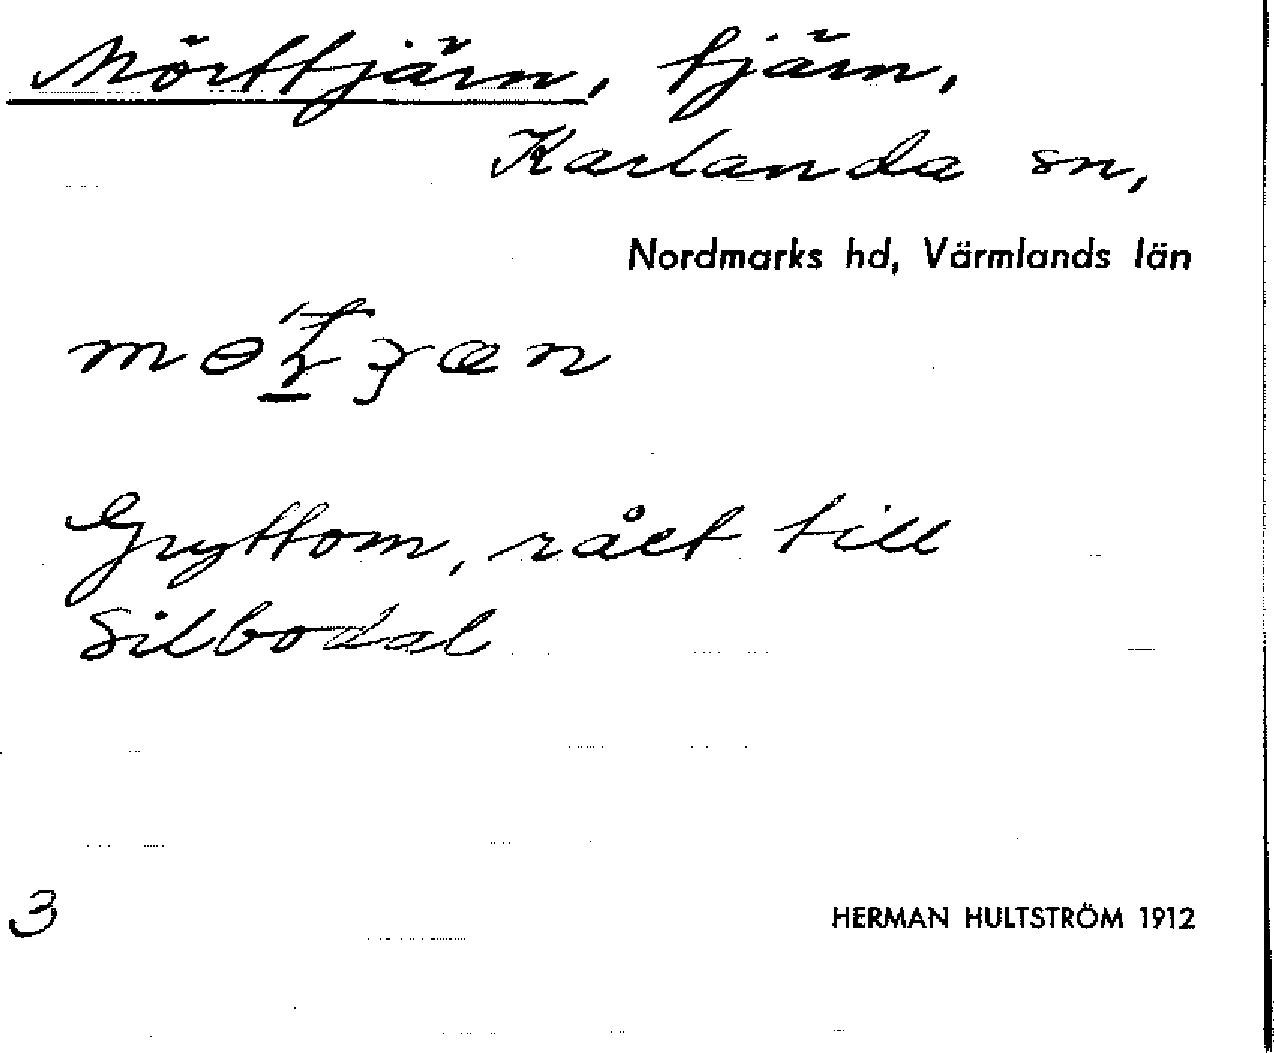 Mörttjärn, tjärn,
Karlanda sn,
Nordmarks hd, Värmlands län
Gryttom, rået till
Silbodal
3
HERMAN HULTSTRÖM 1912